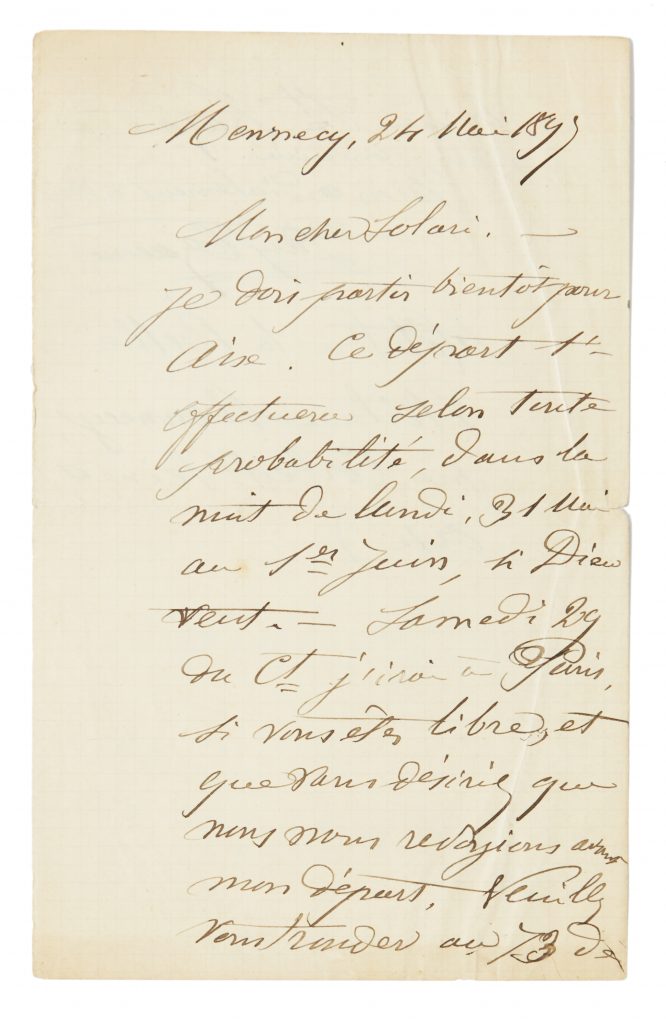 Mennecy, 24 Mai 1897
Mon cher Solari. —
je dois partir bientôt pour
Aix. Ce départ s'-
effectuera selon toute
probabilité, dans la
nuit de lundi, 31 Mai
au 1er Juin, si Dieu
veut. — Samedi 29
du Ct j'irai à Paris,
si vous êtes libre, et
que vous désiriez que
nous nous revoyions avant
mon départ, Veuillez
vous trouver au 73 de